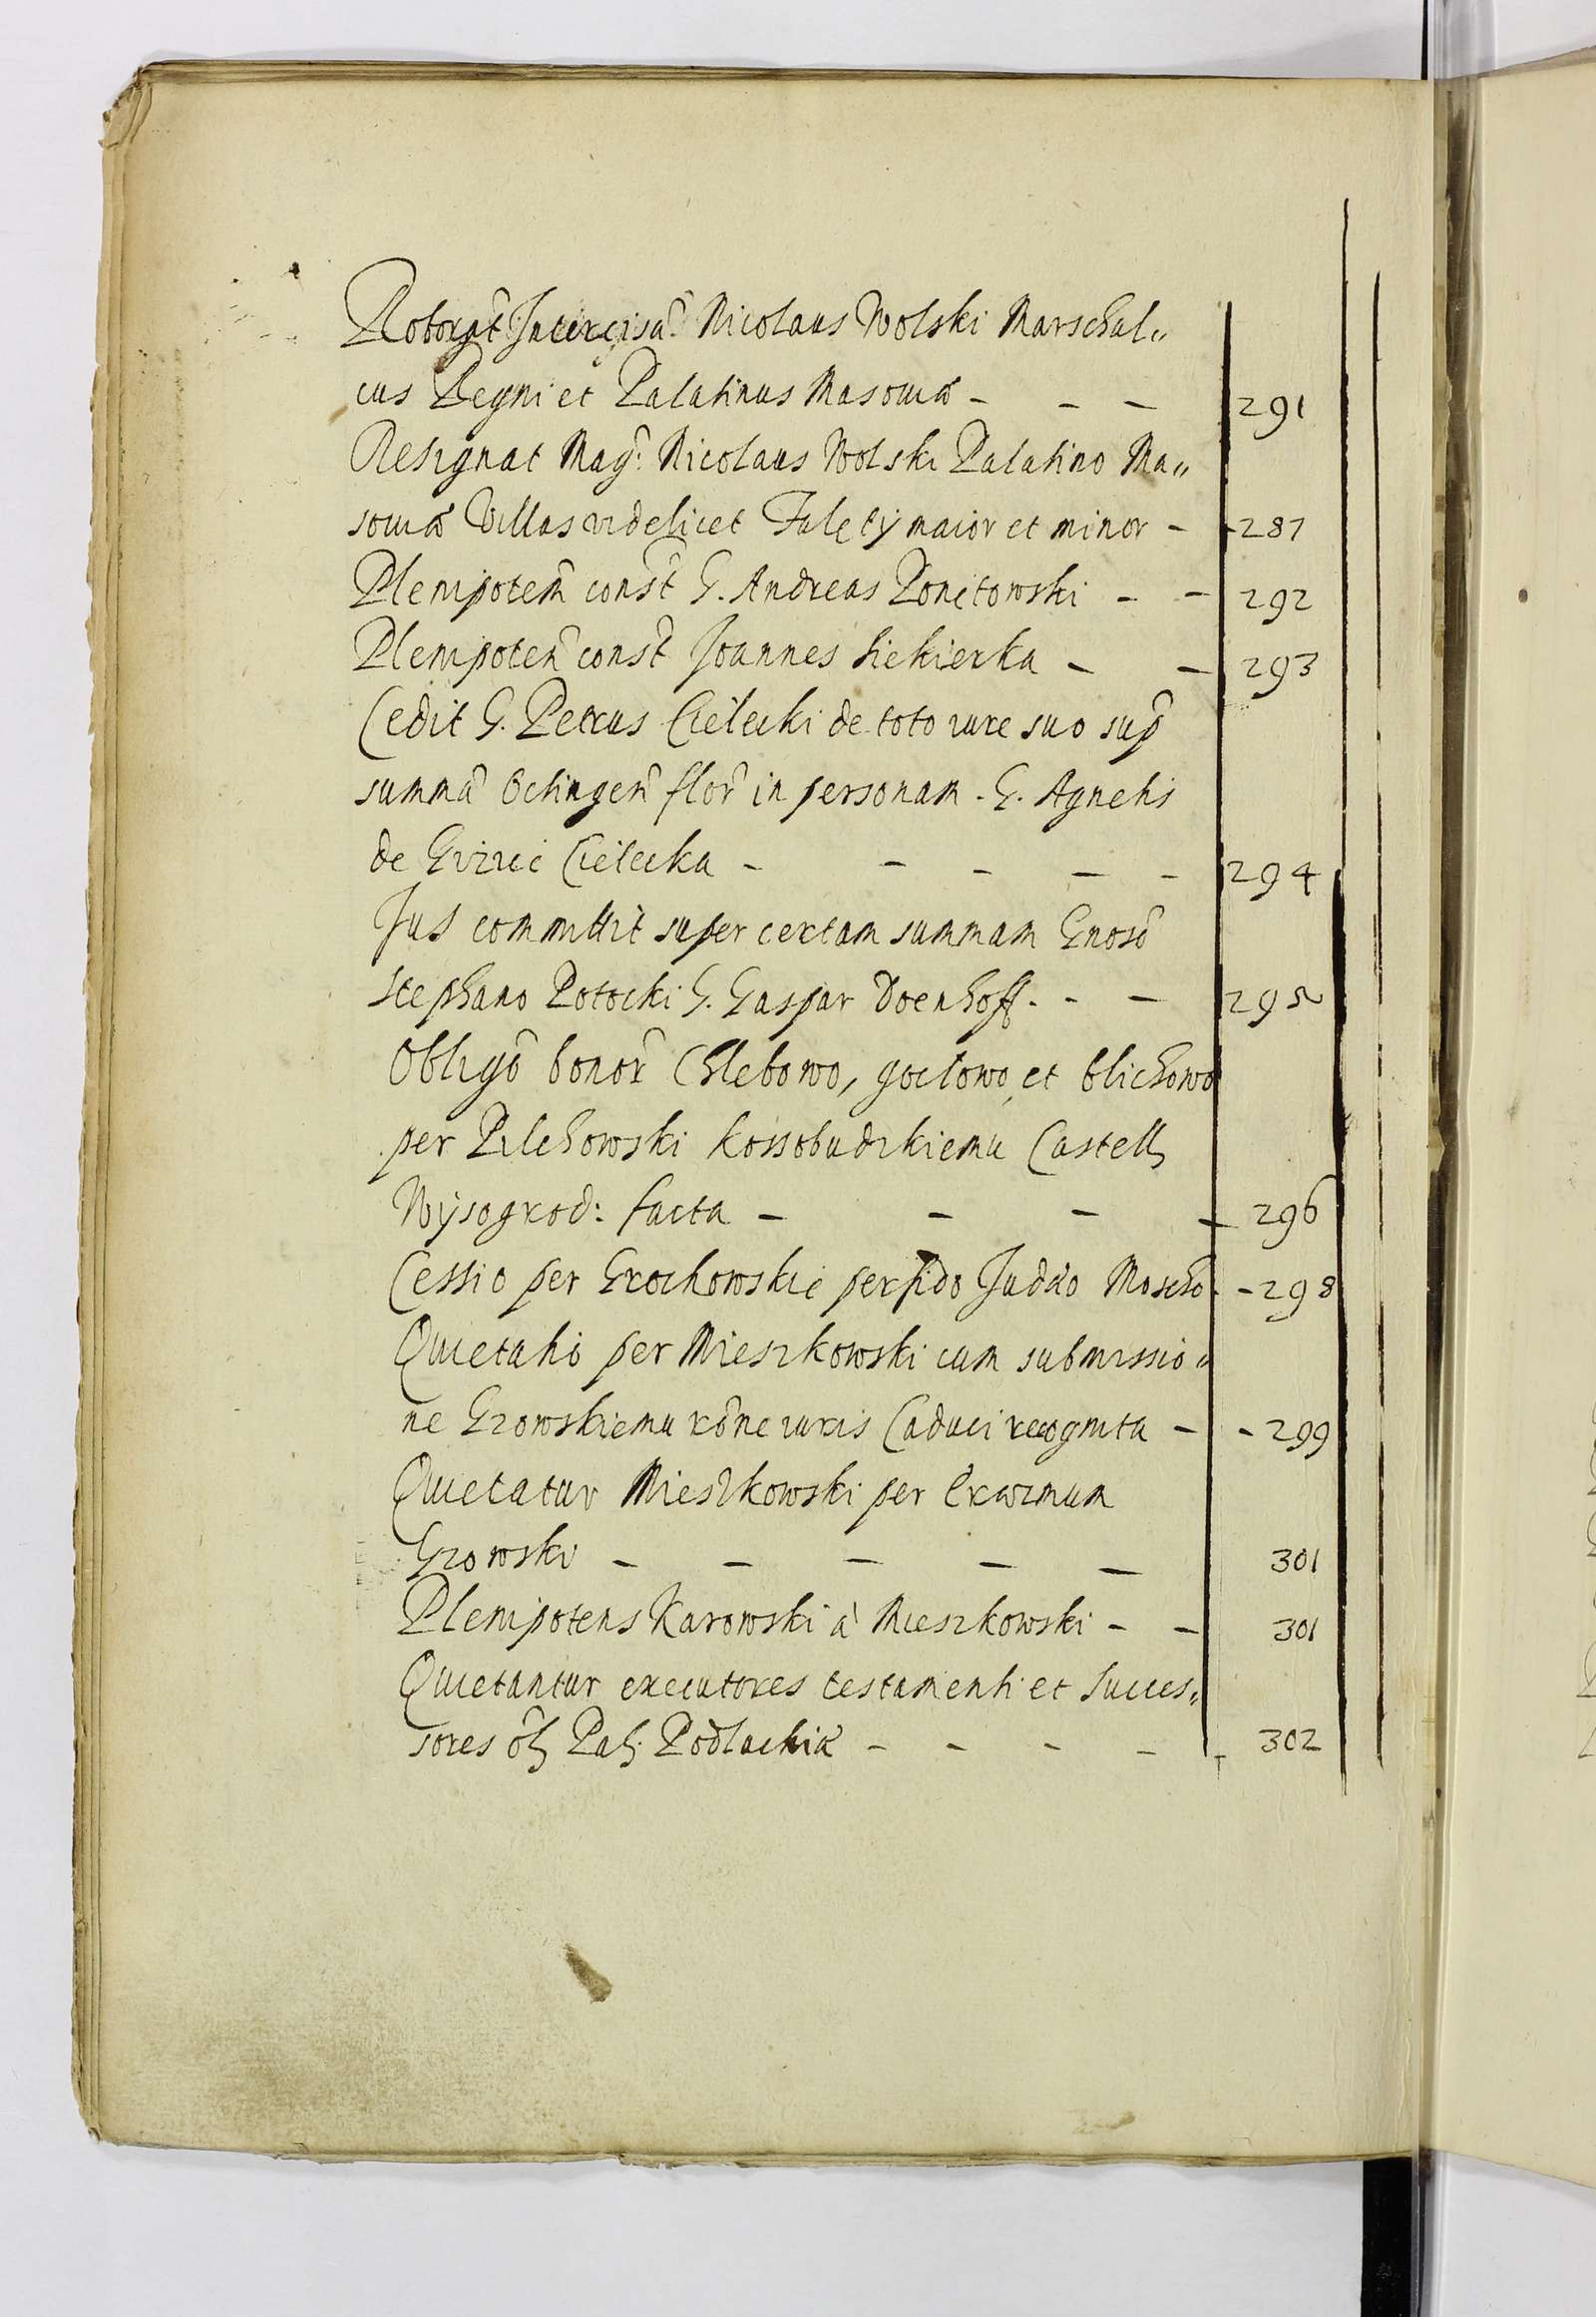 Roborat Intercisã Nicolaus Wolski Marschal„
cus Regni et Palatinus Masouiæ - - - 291
Resignat Mag: Nicolaus Wolski Palatino Ma„
souiæ Villas videlicet Falęty maior et minor - - 287
Plenipoteñ const̃ G. Andreas Ponętowski - - 292
Plenipoteñ const̃ Joannes Siekierka - - 293
Cedit G. Petrus Cielecki de toto iure suo sup̃
summã Octingeñ flor̃ in personam G. Agnetis
de Cielecka - - - - - 294
Jus committit super certam summam Gnosõ
Stephano Potocki G. Gaspar Doenhoff - - - 295
Obligõ bonor̃ Chlebowo, goclowo, et blichowo
per Pilchowski Kossobudzkiemu Castell
Wysogrod: facta - - - - 296
Cessio per Grochowskie perfido Judæo Moscho - - 298
Quietatio per Mieszkowski cum submissio„
ne Gzowskiemu rõne iuris Caduci recognita - - 299
Quietatur Mieszkowski per Erazmum
Gzowski - - - - - 301
Plenipotens Karowski à Mieszkowski - - 301
Quietantur executores testamenti et Succes„
sores ol Pal. Podlachiæ - - - - - 302